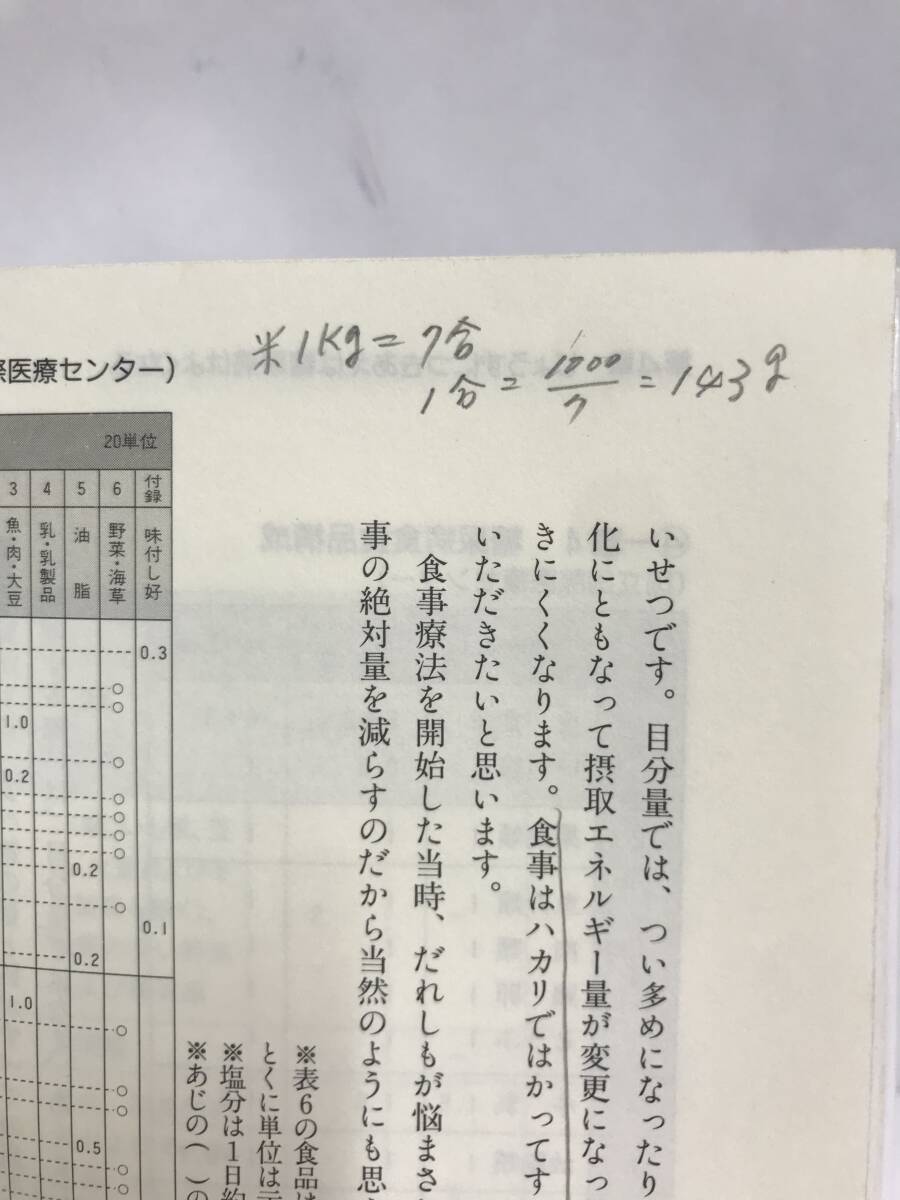 米1Kg=7合
1合=1000/7=143g
際医療センター)
20単位
3 4 5 6 付録
魚・肉・大豆
乳・乳製品
油脂
野菜・海草
味付し好
0.3
1.0
0.2
0.2
0.1
0.2
1.0
0.5
いせつです。目分量では、つい多めになったり
化にともなって摂取エネルギー量が変更になっ
きにくくなります。食事はハカリではかってす
いただきたいと思います。
食事療法を開始した当時、だれしもが悩まさ
事の絶対量を減らすのだから当然のようにも思
※表6の食品は
とくに単位は
※塩分は1日約
※あじの( )の